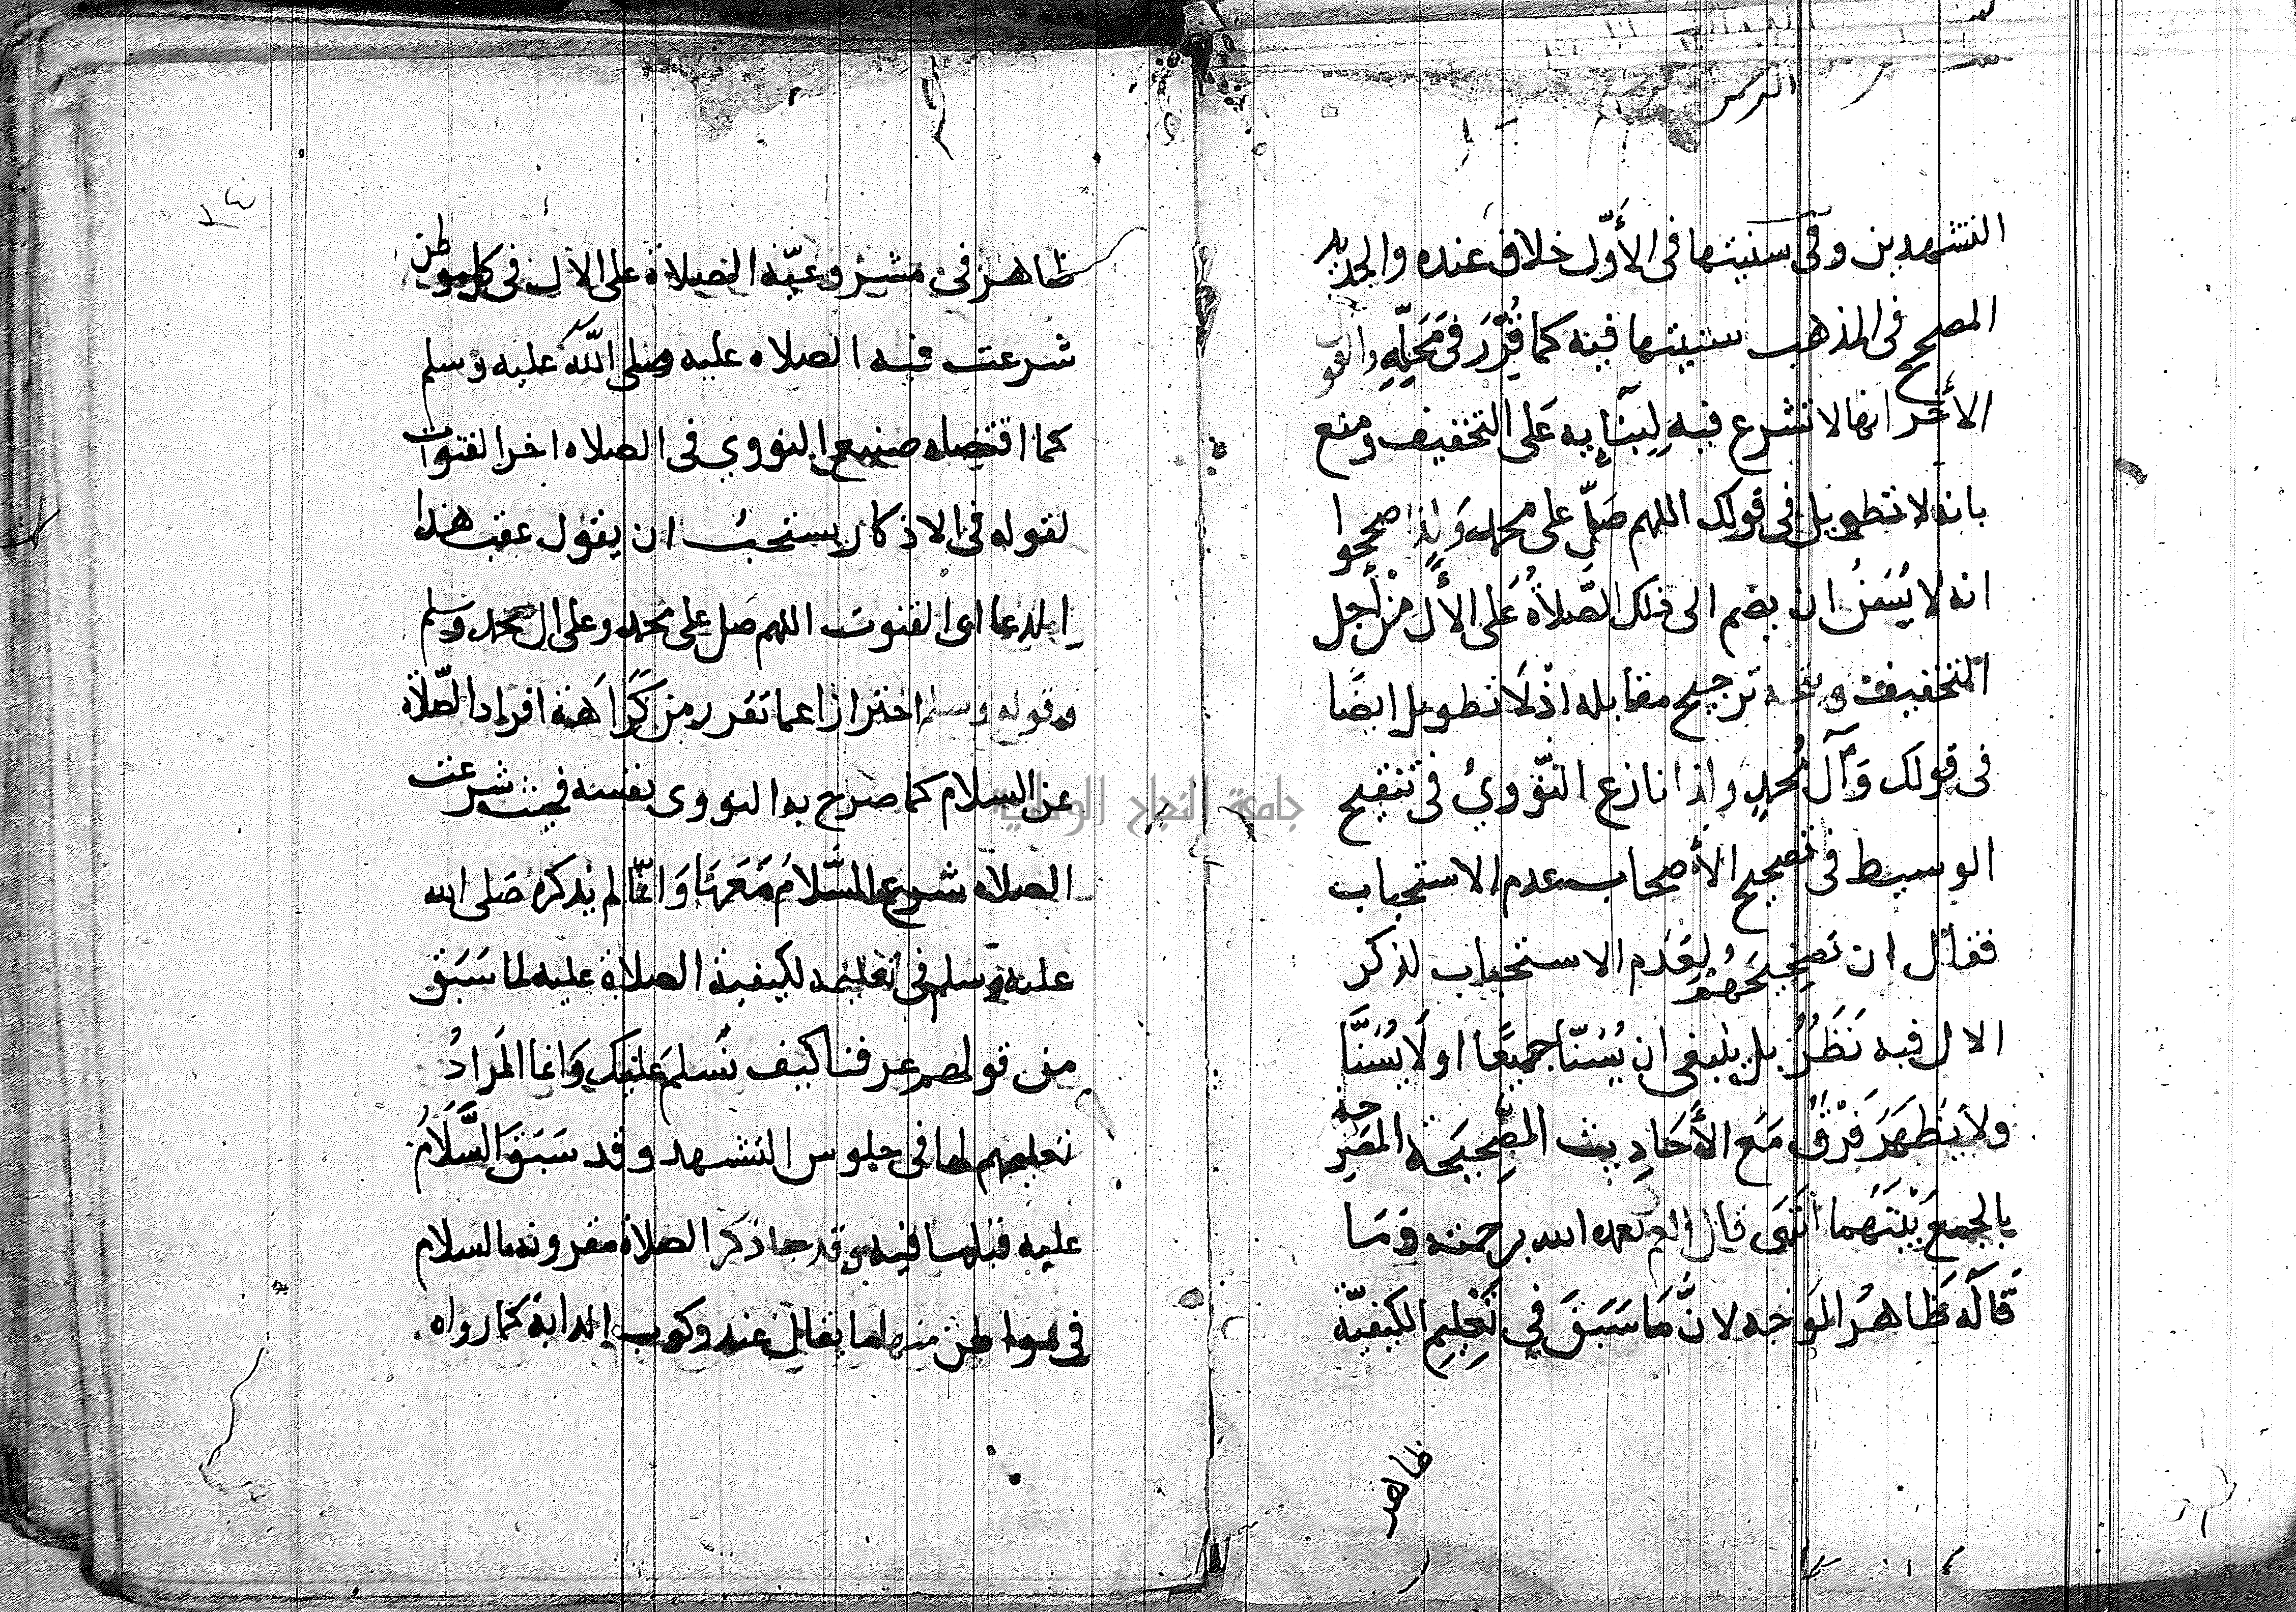 التشهدين وفى سنيتها فى الأوّل خلاف عنده والجديد
المصحح فى المذهب سنيتها فيه كما قُرِّرَ فى مَحَلِّهِ والقول
الأخر انها لا تشرع فيه لِبِنَآئِهِ عَلى التخفيف ومنع
بانه لا تطويل فى قولك اللهم صَلِّ على محمد وَلِذا صححوا
انه لا يُسَنُ ان يضم الى ذلك الصّلاةُ عَلى الأٓل من أجل
التخفيف ويتجه ترجيح مقابله اذ لَا تطويل ايضًا
فى قولك وَآلِ مُحمدٍ واذا نازع النّوويُ فى تنقيح
الوسيط فى تصحيح الأصحاب عدم الاستحباب
فقال ان تَصْحِيحَهُمْ لِعَدَم الاستحباب لذكر
الال فيه نَظَرٌ بل ينبغى ان يُسَنّا جميعًا او لَا يُسَنَّا
ولا يَظهَرَ فَرْقٌ مَع الأَحَادِيث الصَّحِيحَة المصَرِّحة
بالجمعَ بَيْنَهُما انتَهَى قال الم تغمده الله برحمته وَمَا
قَالَه ظَاهرُ الموَجه لانَّ مَا سَبَقَ فِي تَعْلِيمِ الكيفيّة
ظاهر
ظاهر فى مشروعيّة الصلاة على الال فى كل موطن
شرعت فيه الصلاه عليه صلى اللّه عليه وسلم
كما اقتضاه صنيع النووي فى الصلاه اخر القنوت
لقوله فى الاذكار يستحبُ ان يقول عقب هذا
الدعا اى القنوت اللهم صل على محمد وعلى ال محمد وسلم
وقوله وسلم احترازا عما تقرر من كَرَاهَة افراد الصّلاة
عن السلام كما صرح به النووى نفسه فحيث شرعت
الصلاه شرع السَّلَامُ مَعَهَا وَانّما لم يذكره صَلى الله
عليه وسلم فى تعليمه لكيفية الصلاة عليه لما سَبَق
من قولهم عرفنا كيف نُسلم عَليك وَانما المَرادُ
تعليمهم لها فى جلوس التشهد وقد سَبَقَ السَّلَامُ
عليه قبلها فيه وقد جا ذكر الصلاة مقرونه بالسلام
فى مواطن منها ما يقال عند ركوب الدابة كما رواه
١٤
جامعة النجاح الوطنية